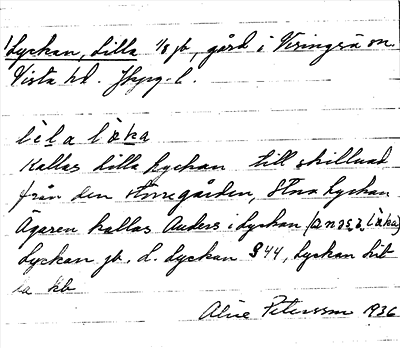 Lyckan, Lilla 1/8 jb, gård i Visingsö sn.
Vista hd. Jkpg. l.
lìla lỳka
Kallas Lilla Lyckan till skillnad
från den större gården, Stora Lyckan
Ägaren kallas Anders i Lyckan
Lyckan jb. L. Lyckan 844, Lyckan Lil
la kb
Alice Petersson 1936